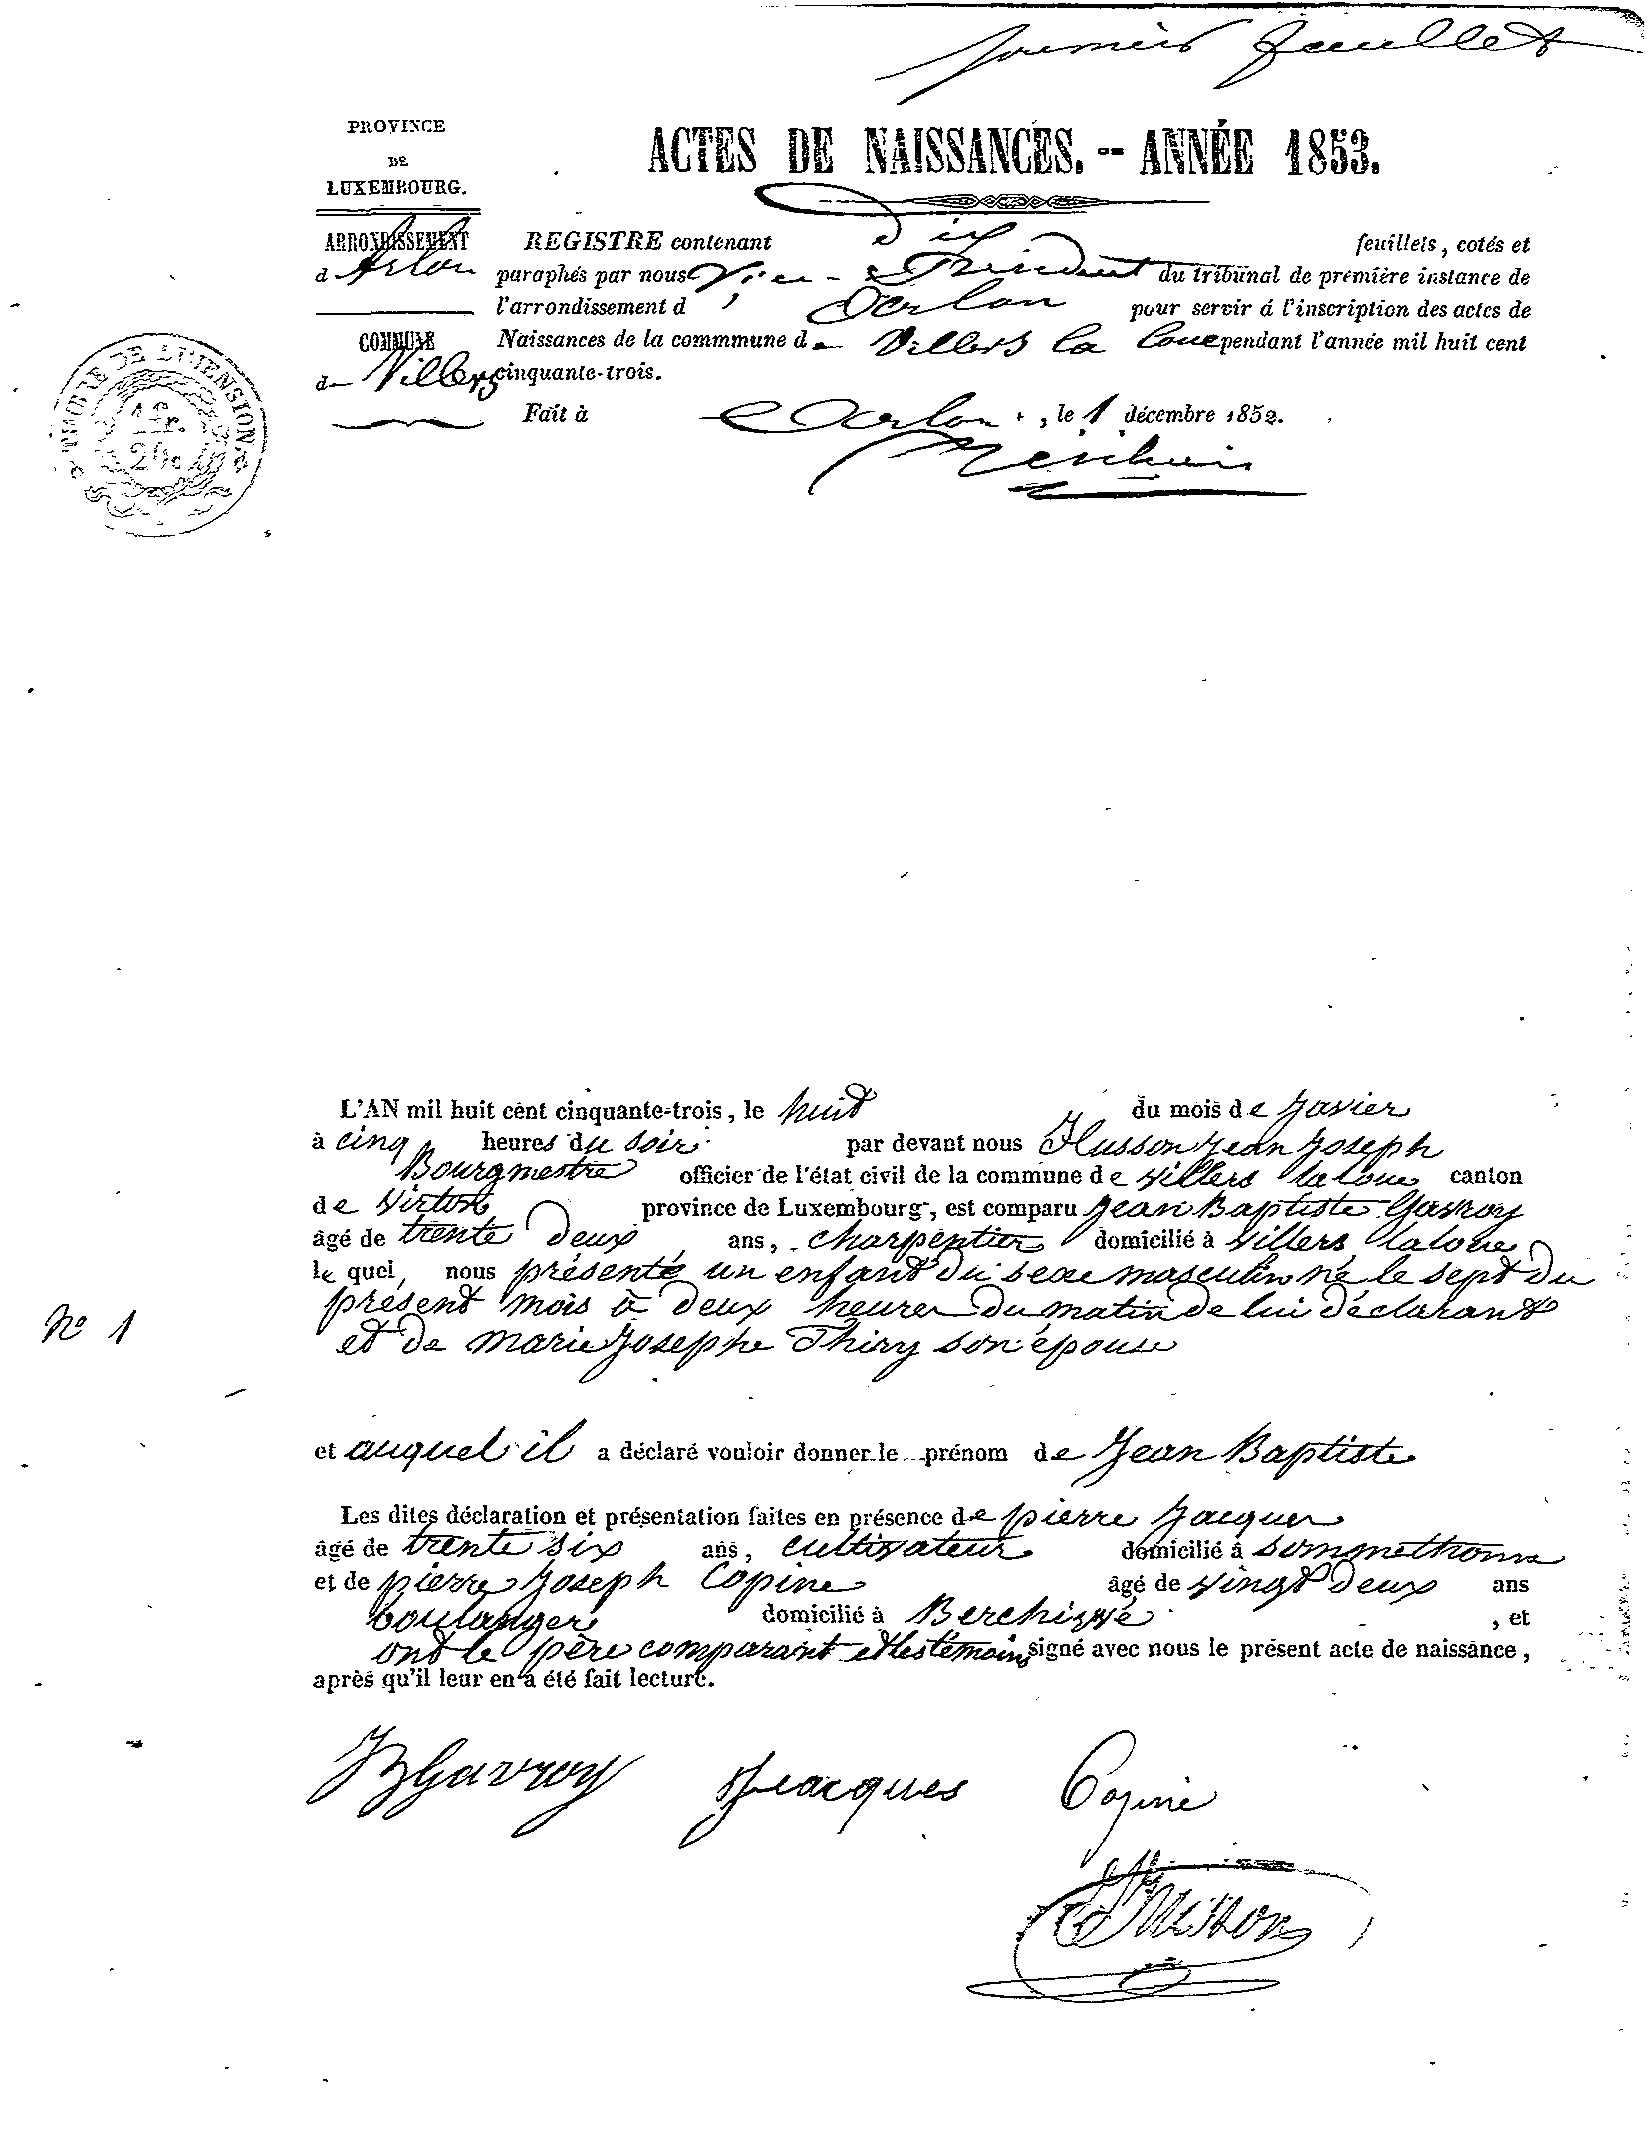 premier feuillet
PROVINCE
DE
LUXEMBOURG.
ACTES DE NAISSANCES. -- ANNÉE 1853.
ARRONDISSEMENT
d'Arlon
REGISTRE contenant dix feuillets, cotés et
paraphés par nous Vice-Président du tribunal de première instance de
l'arrondissement d'Arlon pour servir á l'inscription des actes de
COMMUNE
de Villers
Naissances de la commmune de Villers la Loue pendant l'année mil huit cent
cinquante-trois.
Fait à Arlon, le 1 décembre 1852.
TIMBRE DE DIMENSION
1 fr.
20c
L'AN mil huit cent cinquante-trois, le huit du mois de Javier
à cinq heures du soir par devant nous Husson Jean Joseph
Bourgmestre officier de l'état civil de la commune de Villers laloue canton
de Virton province de Luxembourg, est comparu Jean Baptiste Gavroy
âgé de trente deux ans, charpentier domicilié à Villers laloue
le quel, nous présenté un enfant du sexe masculin né le sept du
présent mois à deux heures du matin de lui déclarant
N° 1
et de marie Josephe Thiry son épouse
et auquel il a déclaré vouloir donner le prénom de Jean Baptiste
Les dites déclaration et présentation faites en présence de pierre Jacques
âgé de trente six ans, cultivateur domicilié à sommethonne
et de pierre Joseph Copine âgé de vingt deux ans
boulanger domicilié à Berchiwé, et
ont le père comparant et les témoins signé avec nous le présent acte de naissance,
après qu'il leur en a été fait lecture.
JBGavroy Jacques Copine
Husson